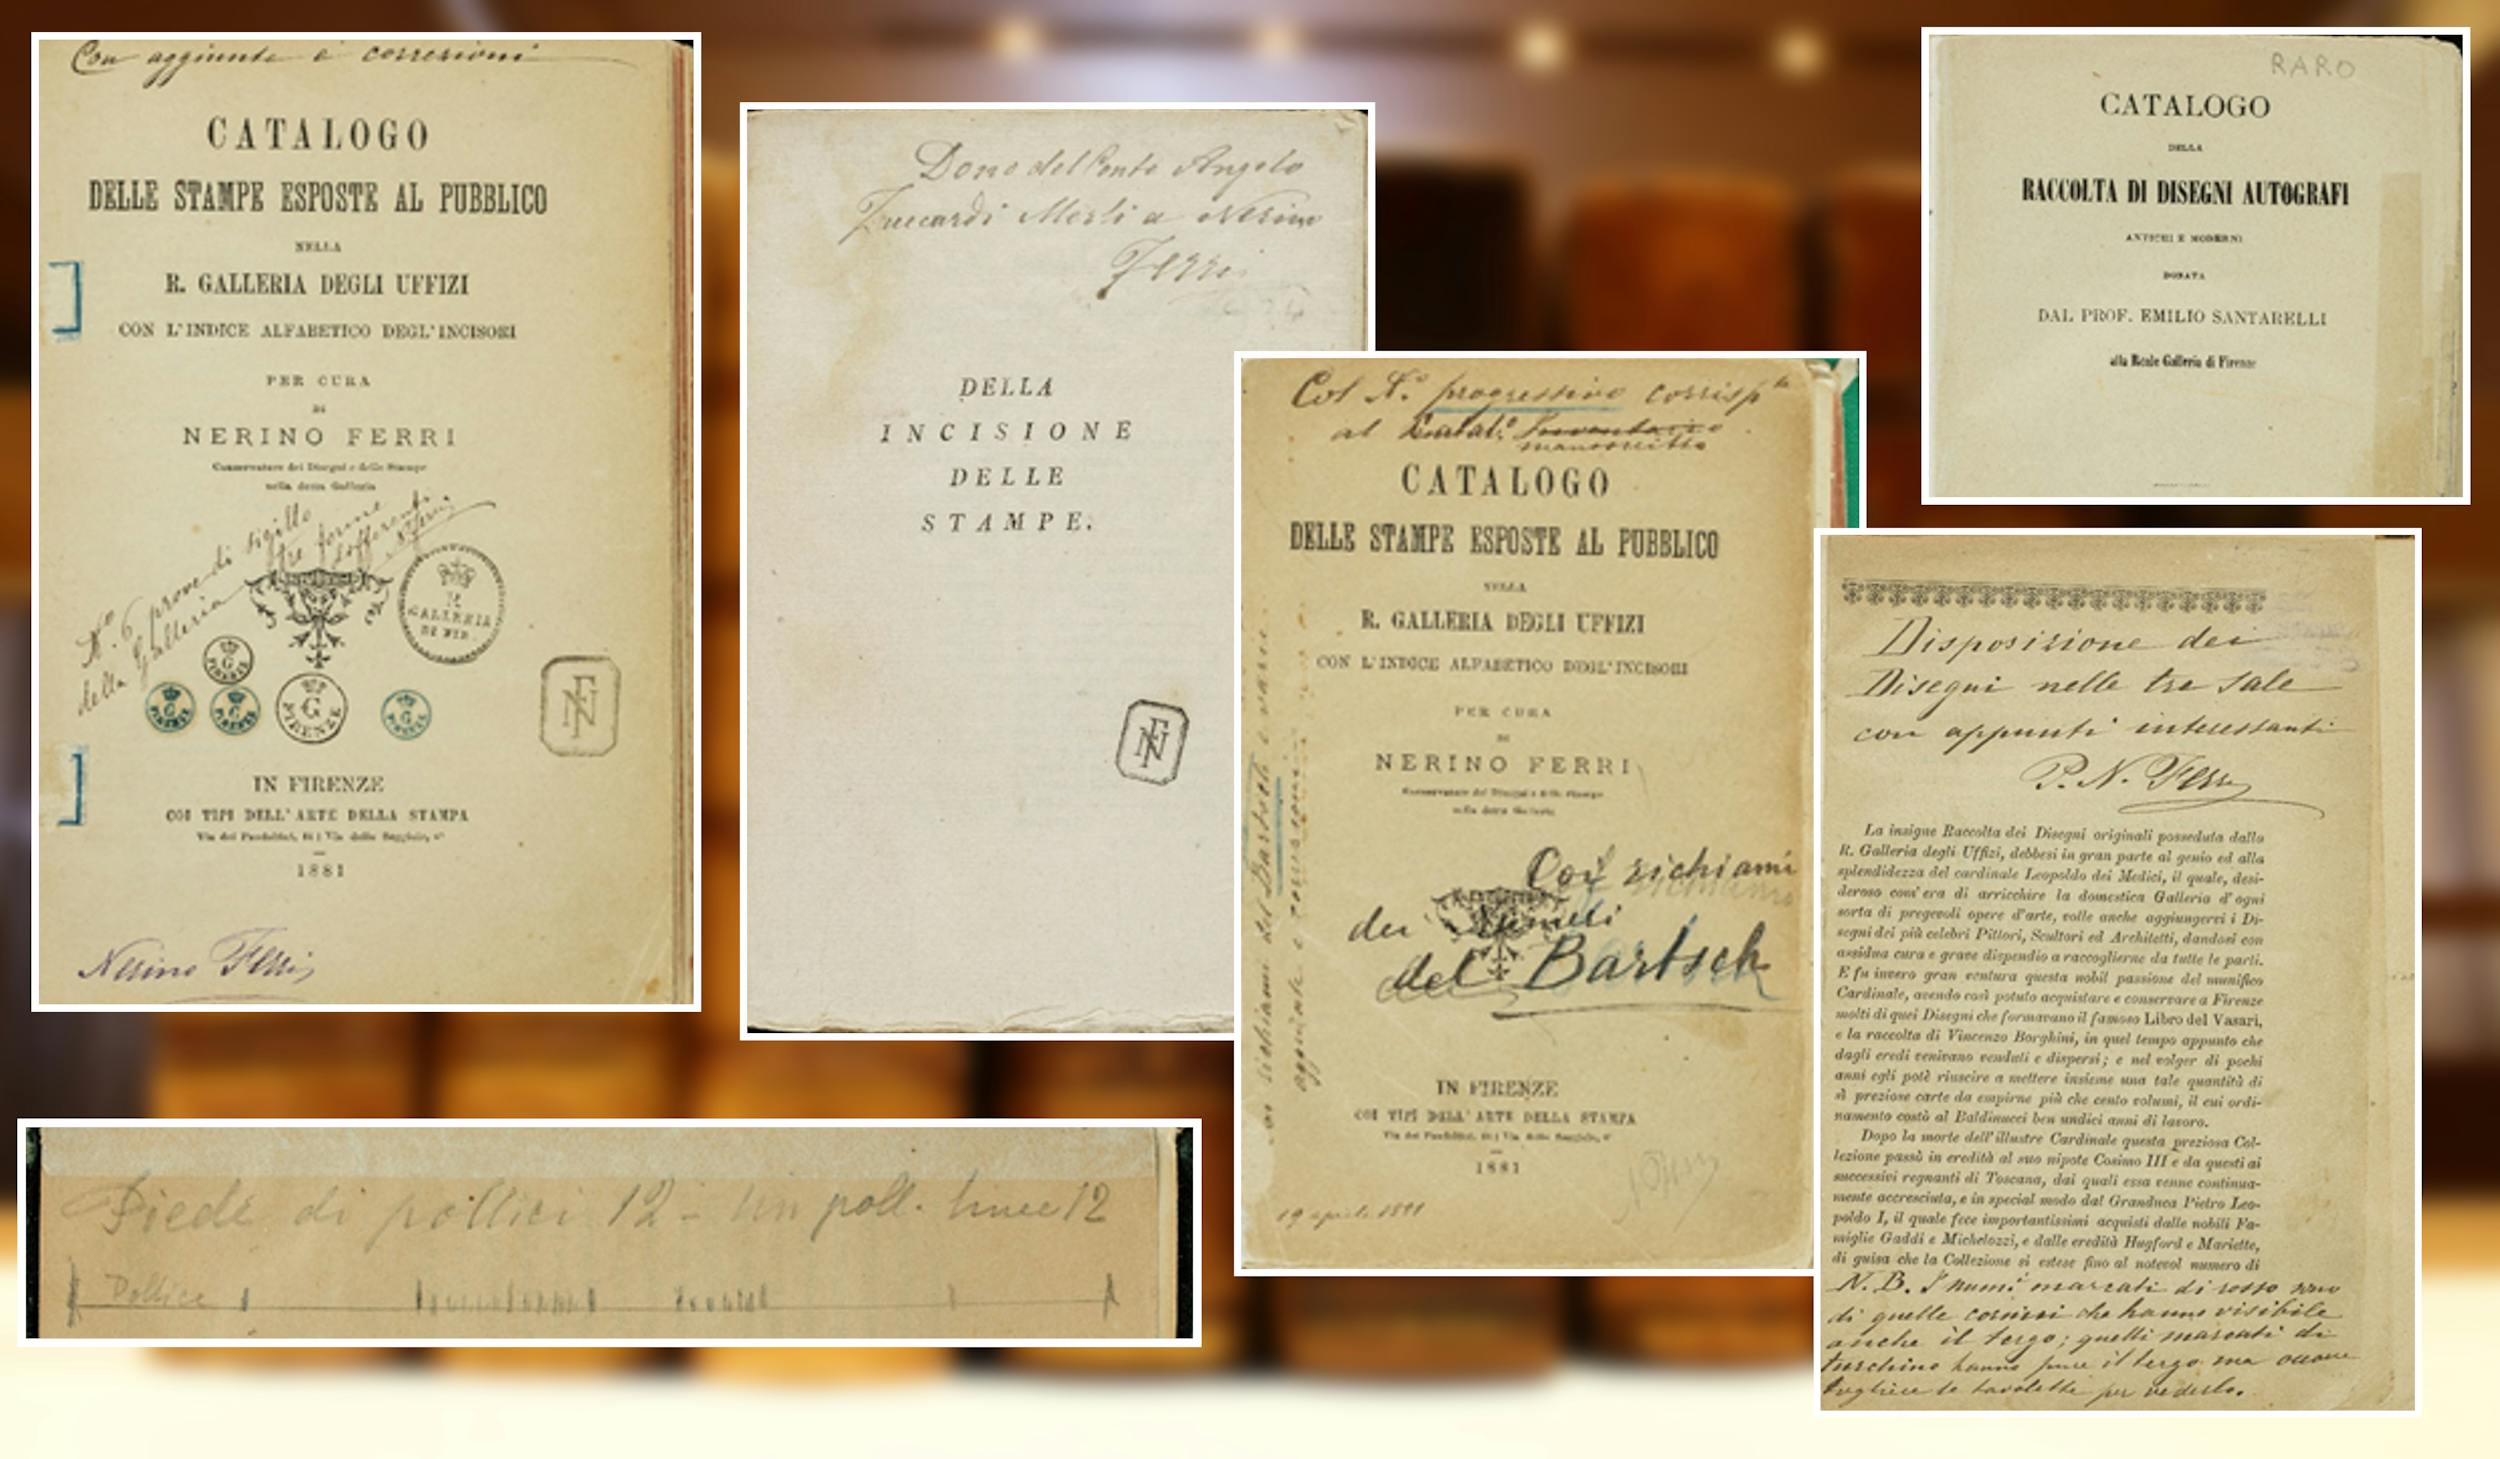 Con aggiunte e correzioni
CATALOGO
DELLE STAMPE ESPOSTE AL PUBBLICO
NELLA
R. GALLERIA DEGLI UFFIZI
CON L'INDICE ALFABETICO DEGL'INCISORI
PER CURA
DI
NERINO FERRI
Conservatore dei Disegni e delle Stampe
nella detta Galleria
No. 6 prove di sigillo
della Galleria
tre forme
differenti
N. Ferri
R
GALLERIA
DI FIR.
G
FIRENZE
G
FIRENZE
G
FIRENZE
G
FIRENZE
G
FIRENZE
NF
IN FIRENZE
COI TIPI DELL'ARTE DELLA STAMPA
Via dei Pandolfini,
1881
Nerino Ferri
Dono del Conte Angelo
Zuccardi Merli a Nerino
Ferri
DELLA
INCISIONE
DELLE
STAMPE.
NF
Col N.o progressivo corrisp.te
al Catal.o Inventario
manoscritto
CATALOGO
DELLE STAMPE ESPOSTE AL PUBBLICO
NELLA
R. GALLERIA DEGLI UFFIZI
CON L'INDICE ALFABETICO DEGL'INCISORI
PER CURA
DI
NERINO FERRI
Conservatore dei Disegni e delle Stampe
nella detta Galleria
Coi richiami
dei Numeri
del Bartsch
IN FIRENZE
COI TIPI DELL'ARTE DELLA STAMPA
Via dei Pandolfini,
1881
richiami del Bartsch e varie
aggiunte e correzioni
RARO
CATALOGO
DELLA
RACCOLTA DI DISEGNI AUTOGRAFI
ANTICHI E MODERNI
DONATA
DAL PROF. EMILIO SANTARELLI
alla Reale Galleria di Firenze
Disposizione dei
Disegni nelle tre sale
con appunti interessanti
P. N. Ferri
La insigne Raccolta dei Disegni originali posseduta dalla
R. Galleria degli Uffizi, debbesi in gran parte al genio ed alla
splendidezza del cardinale Leopoldo dei Medici, il quale, desi-
deroso com'era di arricchire la domestica Galleria d'ogni
sorta di pregevoli opere d'arte, volle anche aggiungervi i Di-
segni dei più celebri Pittori, Scultori ed Architetti, dandosi con
assidua cura e grave dispendio a raccoglierne da tutte le parti.
E fu invero gran ventura questa nobil passione del munifico
Cardinale, avendo così potuto acquistare e conservare a Firenze
molti di quei Disegni che formavano il famoso Libro del Vasari,
e la raccolta di Vincenzo Borghini, in quel tempo appunto che
dagli eredi venivano venduti e dispersi; e nel volger di pochi
anni egli potè riuscire a mettere insieme una tale quantità di
sì preziose carte da empirne più che cento volumi, il cui ordi-
namento costò al Baldinucci ben undici anni di lavoro.
Dopo la morte dell'illustre Cardinale questa preziosa Col-
lezione passò in eredità al suo nipote Cosimo III e da questi ai
successivi regnanti di Toscana, dai quali essa venne continua-
mente accresciuta, e in special modo dal Granduca Pietro Leo-
poldo I, il quale fece importantissimi acquisti dalle nobili Fa-
miglie Gaddi e Michelozzi, e dalle eredità Hugford e Mariette,
di guisa che la Collezione si estese fino al notevol numero di
N.B. I numi marcati di rosso sono
di quelle cornici che hanno visibile
anche il tergo; quelli marcati di
turchino hanno pure il tergo ma occorre
togliere le tavolette per vederlo.
Piede di pollici 12 - Un poll. linee 12
Pollice